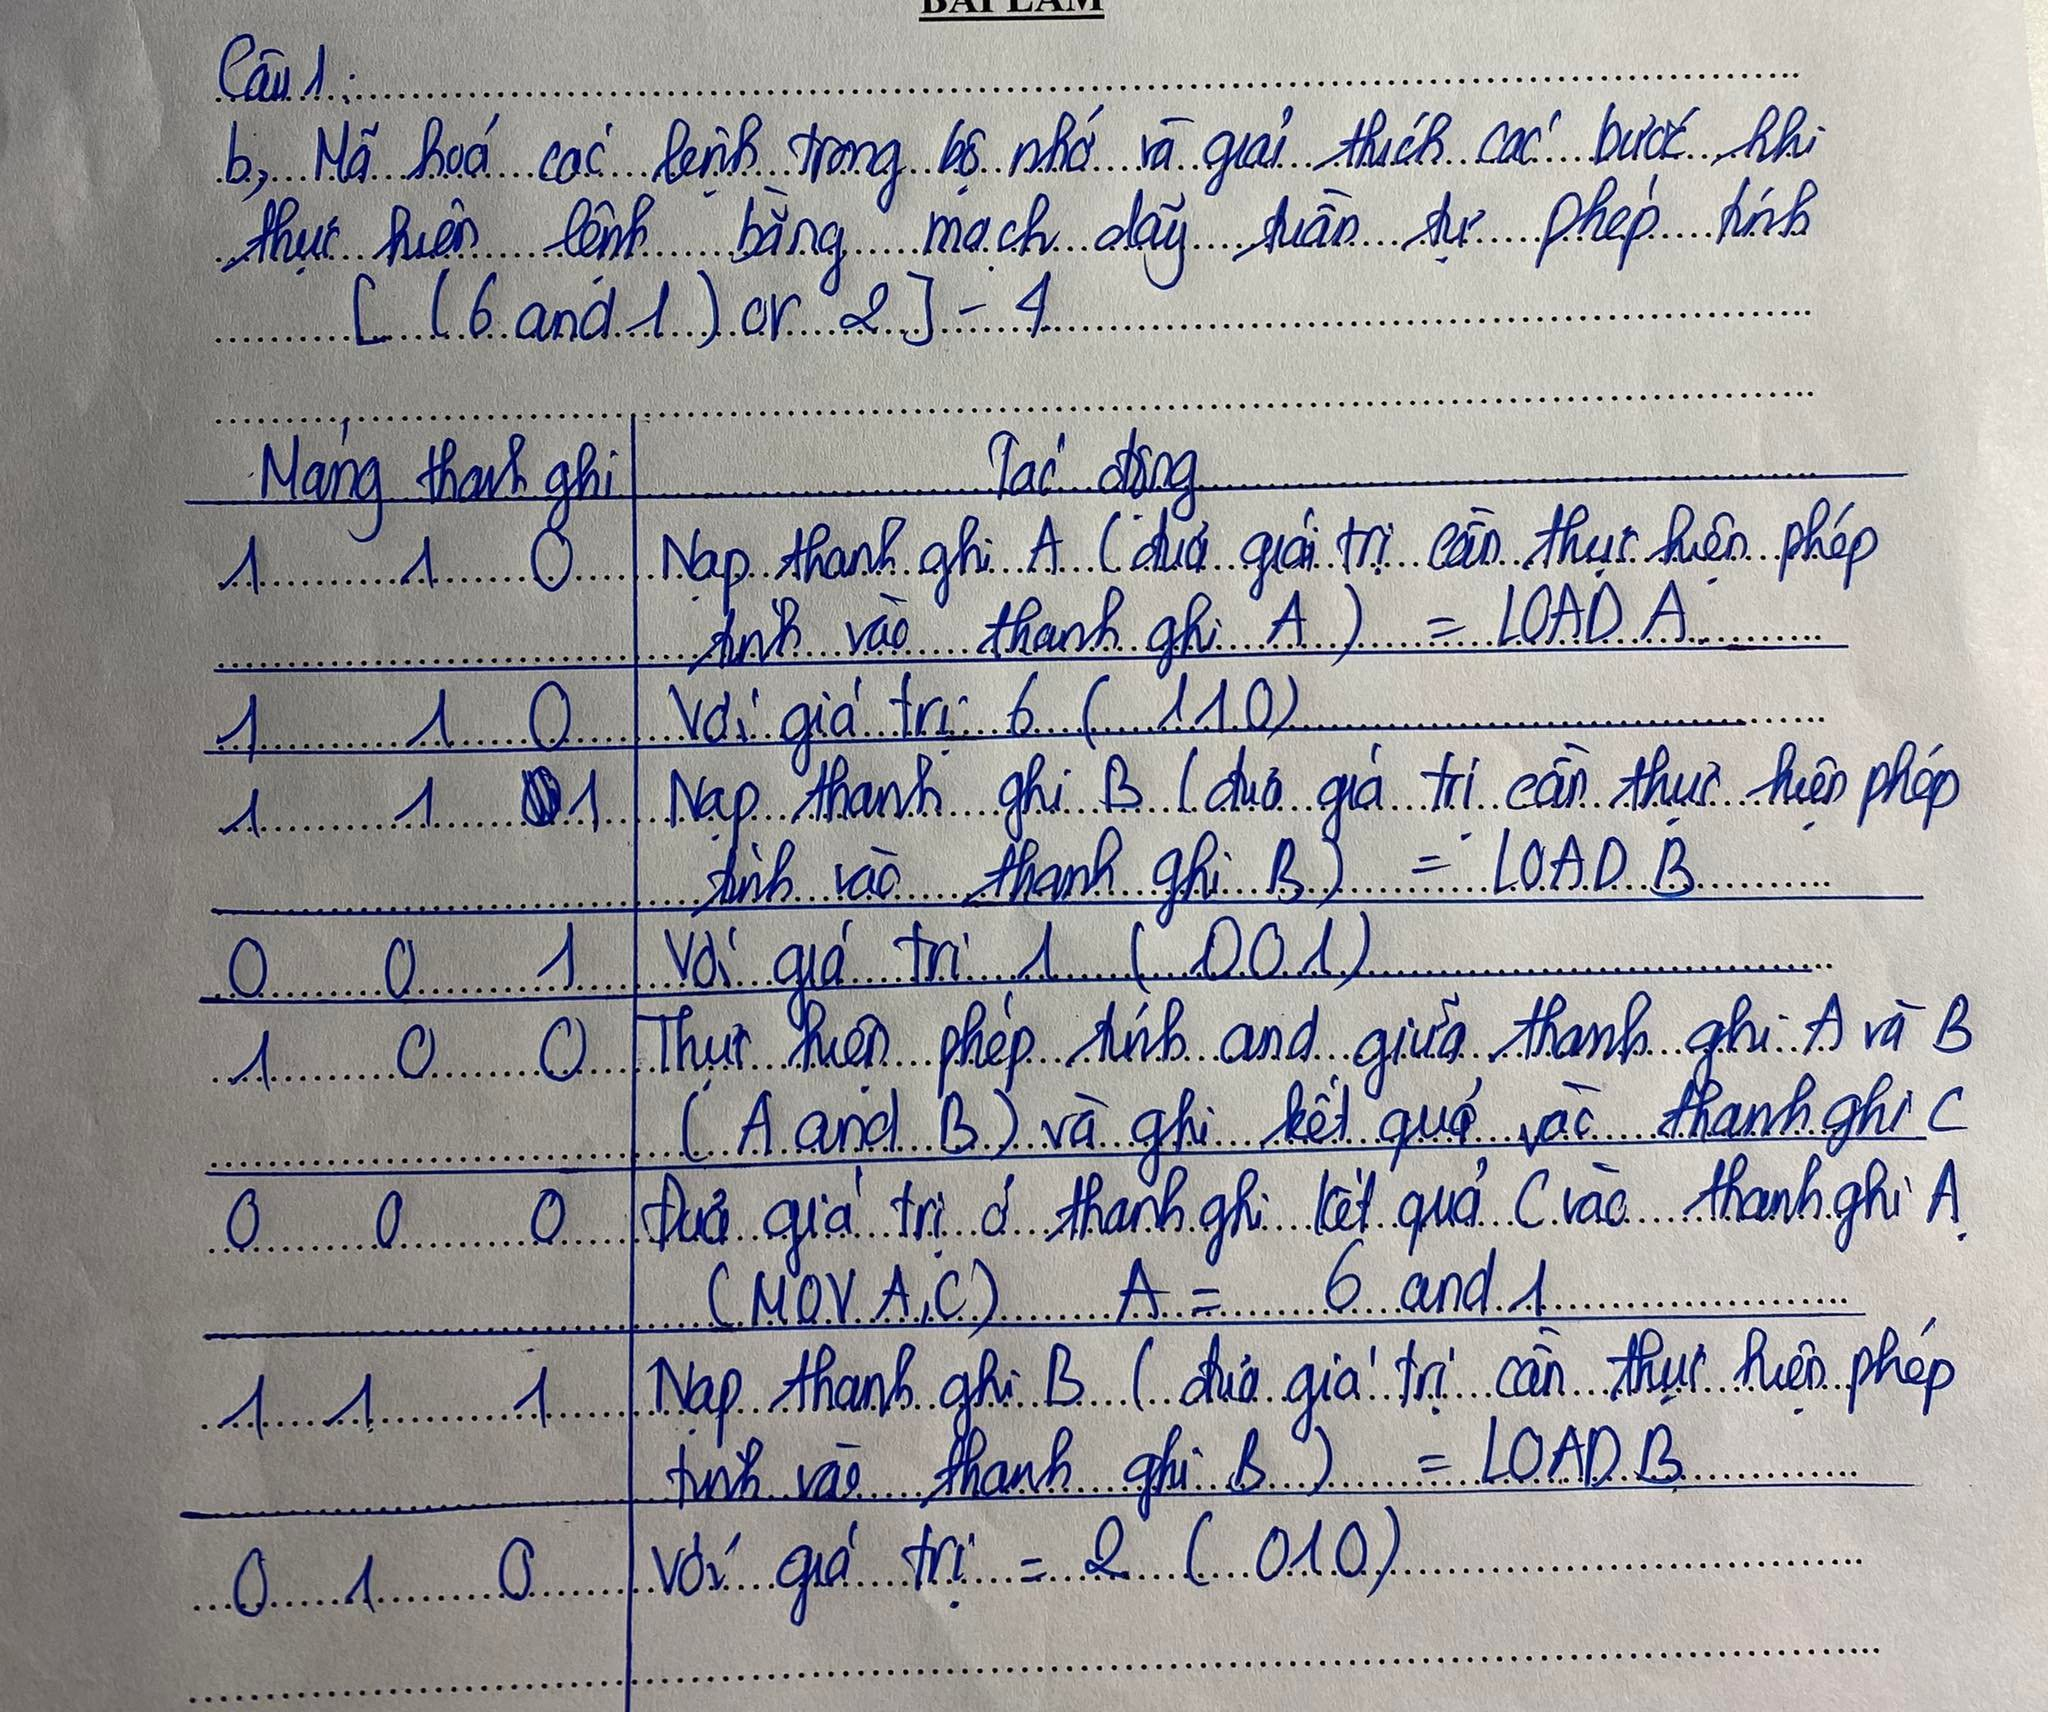 BÀI LÀM
Câu 1:
b, Mã hoá các lệnh trong bộ nhớ và giải thích các bước khi
thực hiện lệnh bằng mạch dãy tuần tự phép tính
[ ( 6 and 1 ) or 2 ] - 4
Mảng thanh ghi | Tác động
1 1 0 | Nạp thanh ghi A ( đưa giái trị cần thực hiện phép
tính vào thanh ghi A ) = LOAD A
1 1 0 | Với giá trị 6 ( 110 )
1 1 1 | Nạp thanh ghi B ( đưa giá trị cần thực hiện phép
tính vào thanh ghi B ) = LOAD B
0 0 1 | Với giá trị 1 ( 001 )
1 0 0 | Thực hiện phép tính and giữa thanh ghi A và B
( A and B ) và ghi kết quả vào thanh ghi C
0 0 0 | Đưa giá trị ở thanh ghi kết quả C vào thanh ghi A
( MOV A, C ) A = 6 and 1
1 1 1 | Nạp thanh ghi B ( đưa giá trị cần thực hiện phép
tính vào thanh ghi B ) = LOAD B
0 1 0 | Với giá trị = 2 ( 010 )